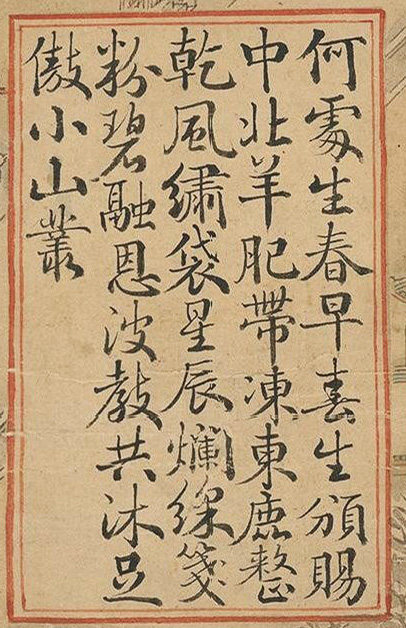 何處生春早喜生頒賜
中北羊肥帶凍東鹿整
乾風繡袋星辰爛綵箋
粉碧融恩波教共沐足
傲小山叢